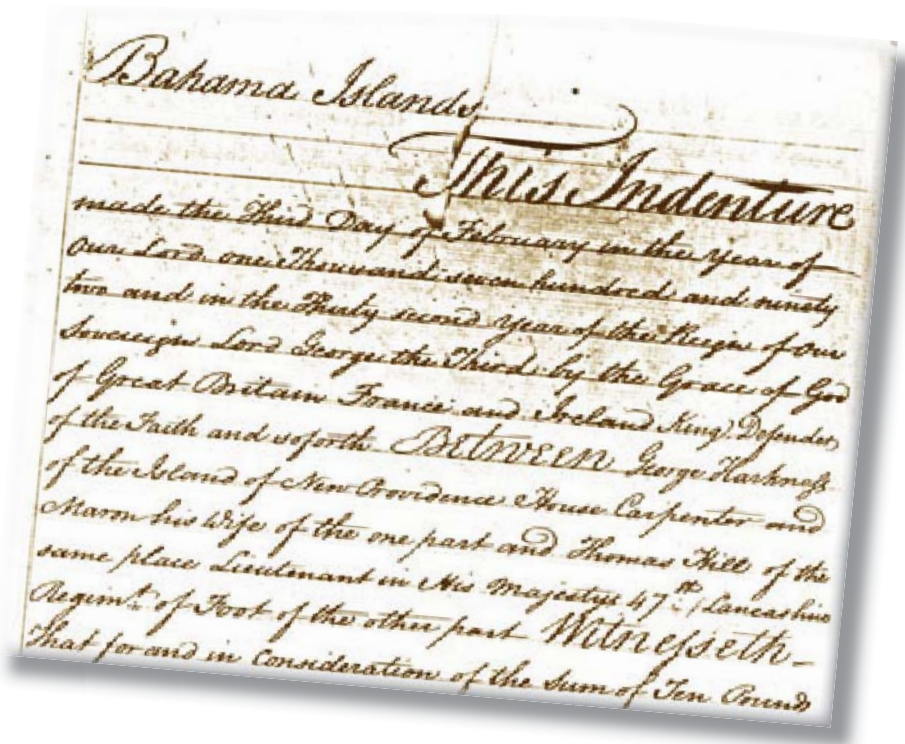 Bahama Islands
This Indenture
made the Third Day of February in the Year of
Our Lord one Thousand seven hundred and ninety
two and in the Thirty second Year of the Reign of Our
Sovereign Lord George the Third by the Grace of God
of Great Britain France and Ireland King, Defender
of the Faith and soforth Between George Harkness
of the Island of New Providence House Carpenter and
his Wife of the one part and Thomas Hill of the
same place Lieutenant in His Majestys 47th (Lancashire
Regimt. of Foot of the other part Witnesseth –
That for and in Consideration of the sum of Ten Pounds